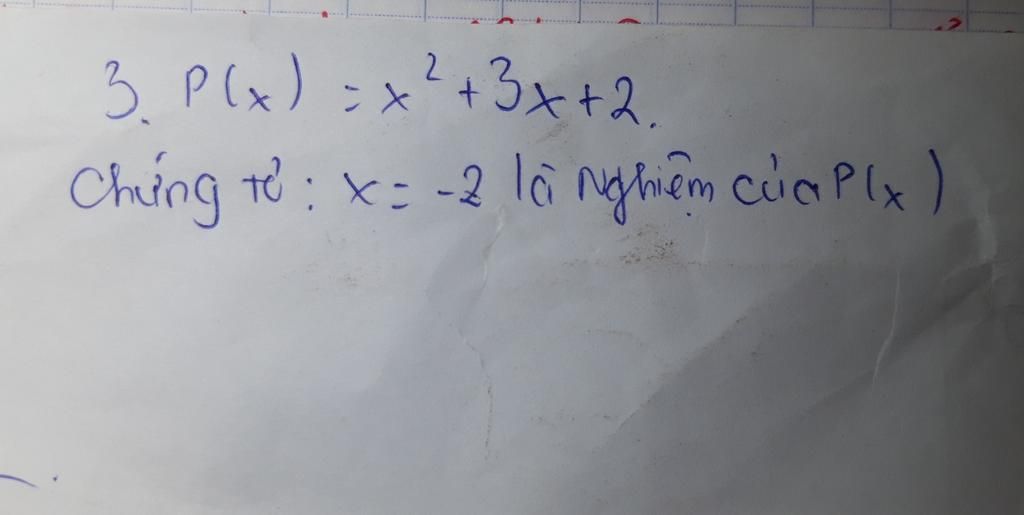 3. P(x) = x² + 3x + 2.
Chứng tỏ : x = -2 là nghiệm của P(x)